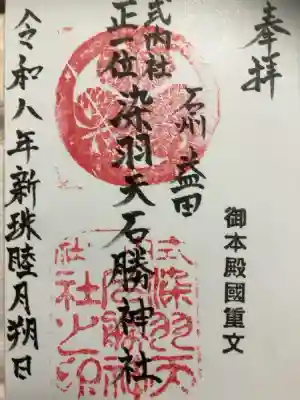 奉拝
石州 益田
御本殿國重文
式内社
正一位 染羽天石勝神社
令和八年新珠睦月朔日